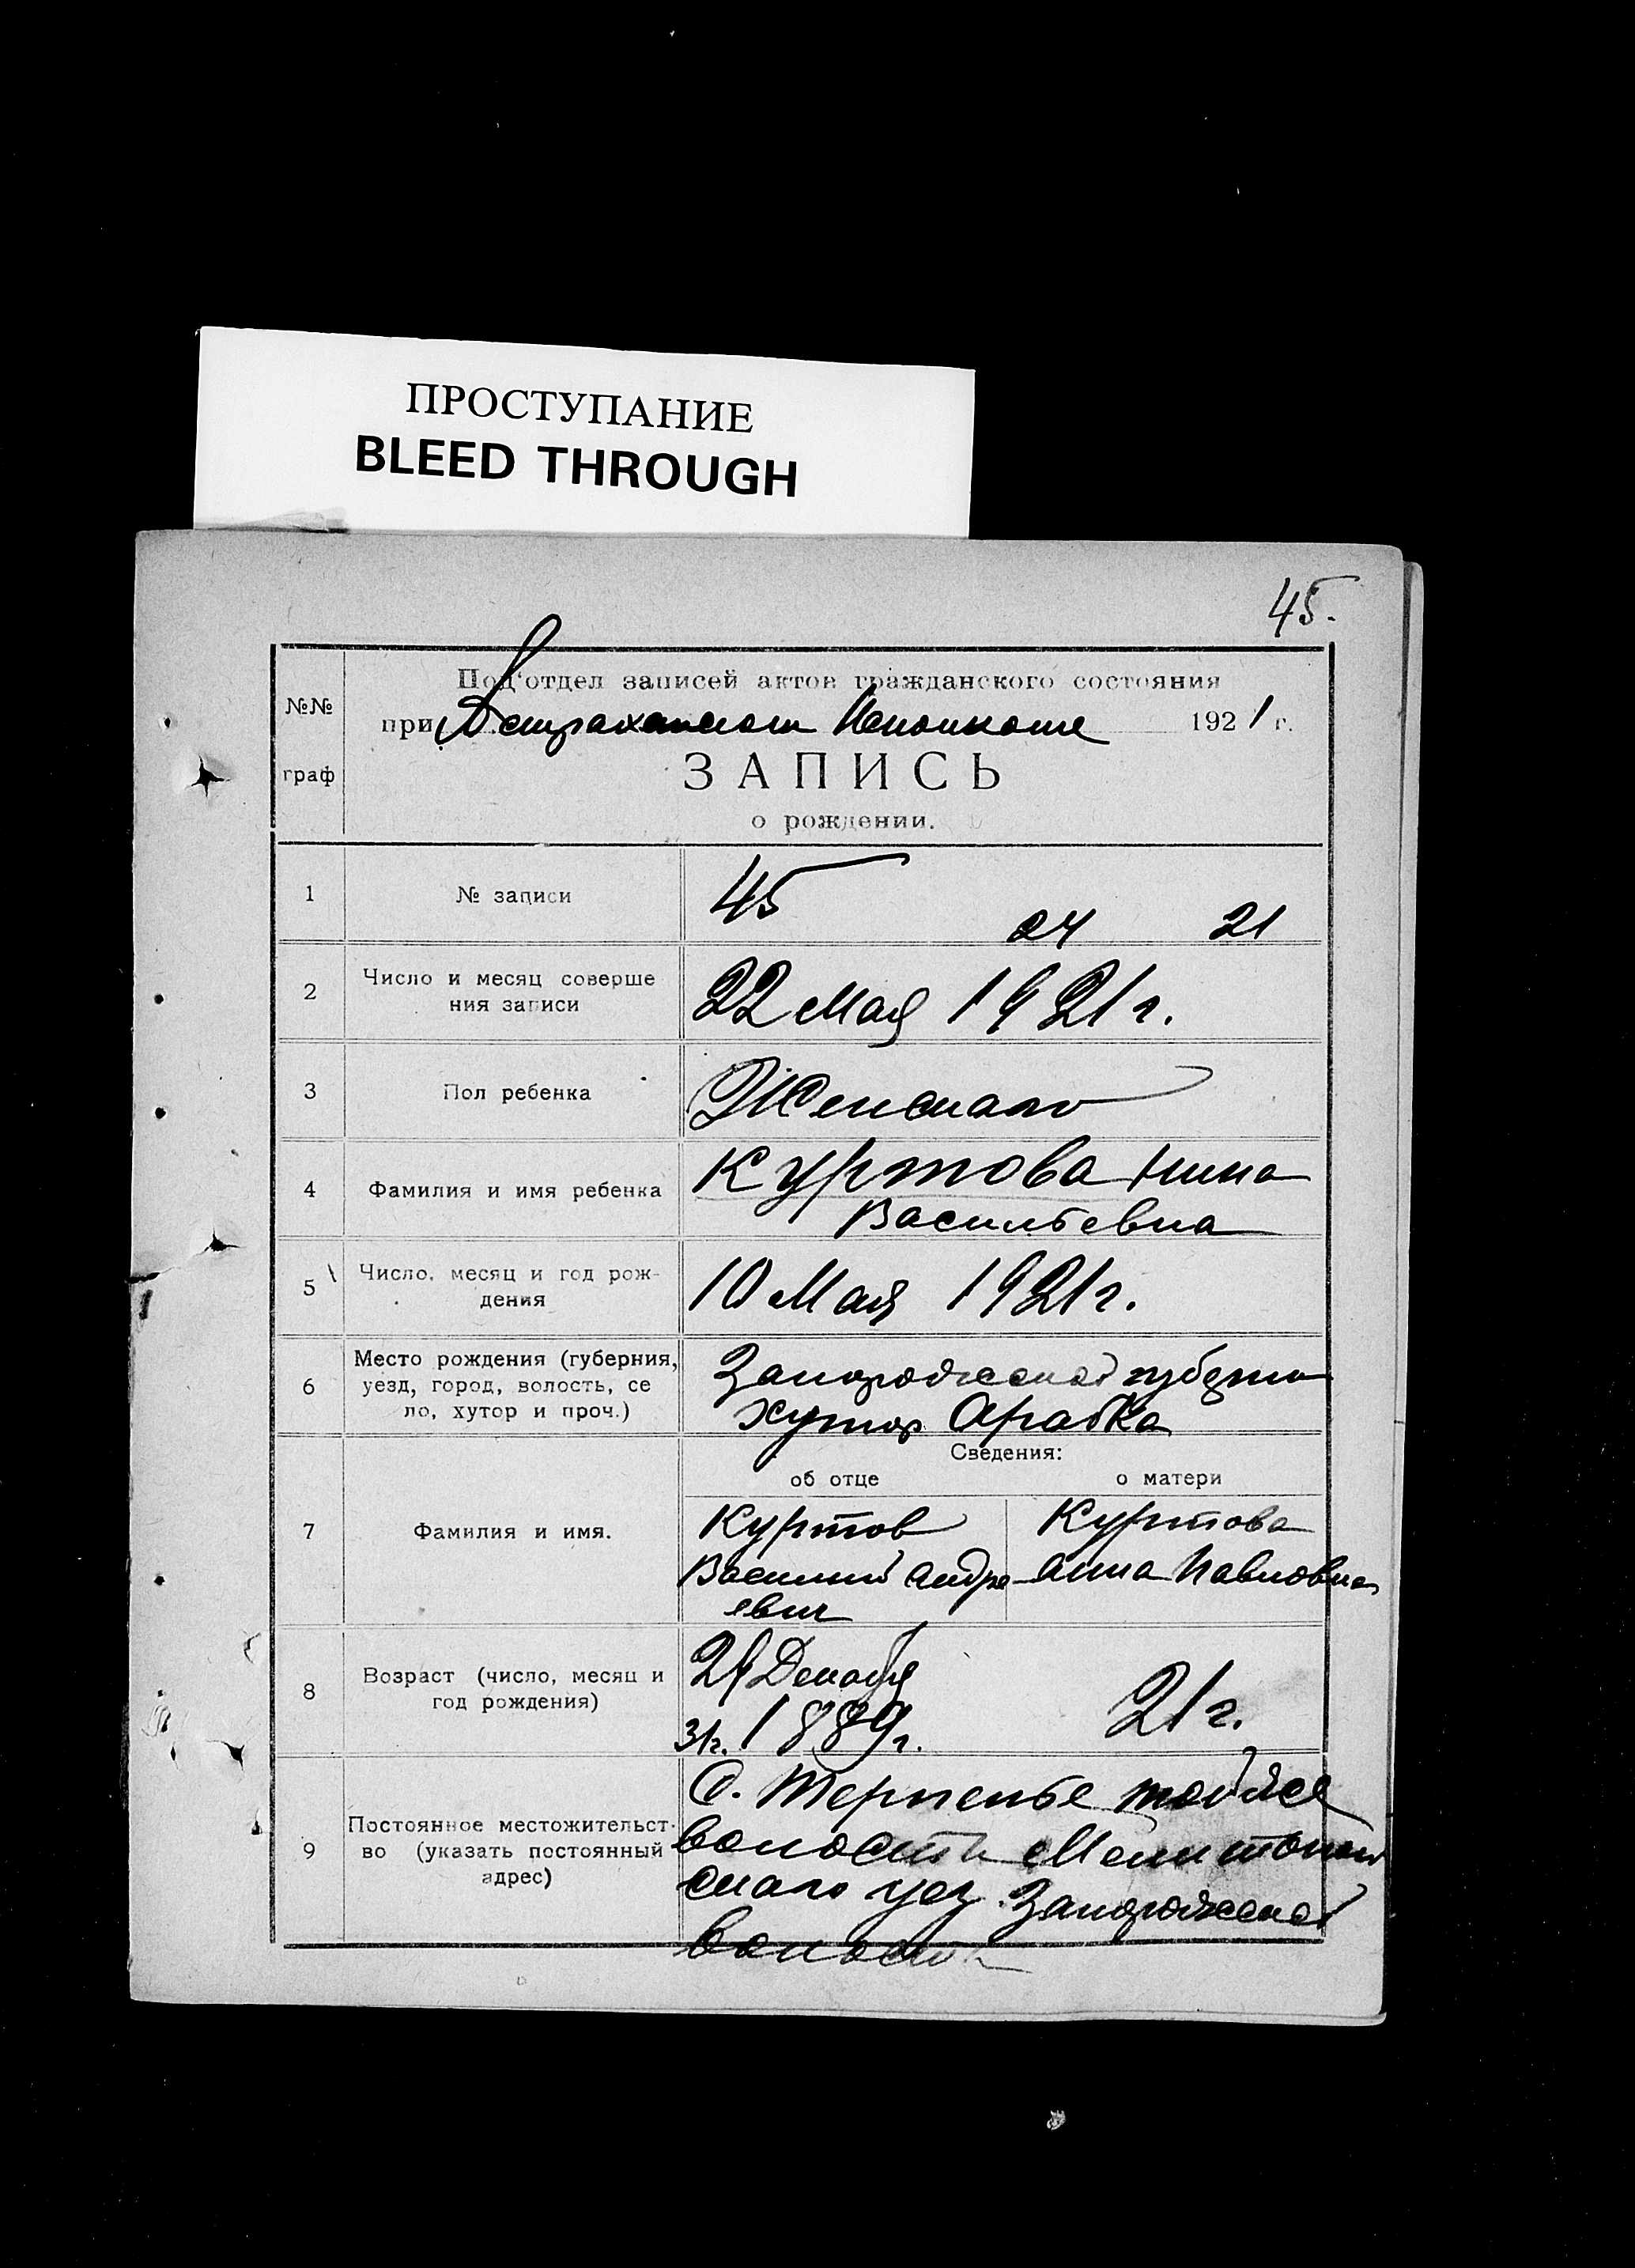 ПРОСТУПАНИЕ
BLEED THROUGH
45.
№№ граф
Под'отдел записей актов гражданского состояния
при Астраханском Исполкоме 1921 г.
ЗАПИСЬ
о рождении.
1 № записи 45
24 21
2 Число и месяц соверше
ния записи
22 Мая 1921 г.
3 Пол ребенка Женскаго
4 Фамилия и имя ребенка Куртова Нина
Васильевна
5 Число, месяц и год рож-
дения
10 Мая 1921 г.
6 Место рождения (губерния,
уезд, город, волость, се
ло, хутор и проч.)
Запорожской губерни
хутор Арабка
Сведения:
об отце о матери
7 Фамилия и имя.
Куртов Куртова
Василий Андре Анна Павловна
евич
8 Возраст (число, месяц и
год рождения)
Декабря
31г. 1889г. 21 г.
9 Постоянное местожительст-
во (указать постоянный
адрес)
С. Терпенье тойже
волости Мелитополь
скаго уез. Запорожской
волости